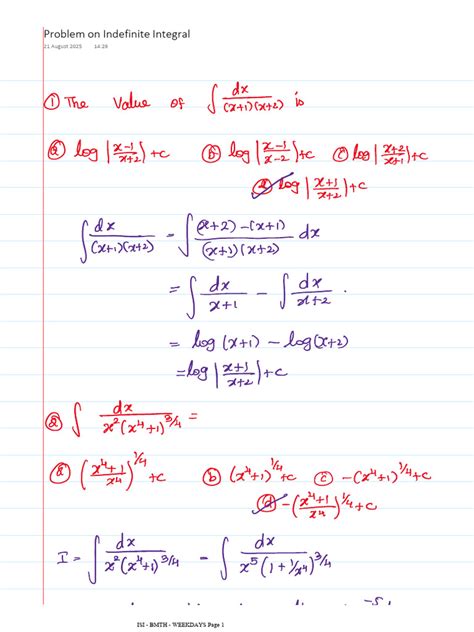 Problem on Indefinite Integral
21 August 2025 14:28
① The Value of ∫ dx/((x+1)(x+2)) is
ⓐ log|(x-1)/(x+2)|+c ⓑ log|(x-1)/(x-2)|+c ⓒ log|(x+2)/(x+1)|+c
ⓓ log|(x+1)/(x+2)|+c
∫ dx/((x+1)(x+2)) = ∫ ((x+2)-(x+1))/((x+1)(x+2)) dx
= ∫ dx/(x+1) - ∫ dx/(x+2) .
= log(x+1) - log(x+2)
= log|(x+1)/(x+2)|+c
② ∫ dx/(x²(x⁴+1)^(3/4)) =
ⓐ ((x⁴+1)/x⁴)^(1/4) +c ⓑ (x⁴+1)^(1/4)+c ⓒ -(x⁴+1)^(1/4)+c
ⓓ -((x⁴+1)/x⁴)^(1/4)+c
I = ∫ dx/(x²(x⁴+1)^(3/4)) - ∫ dx/(x⁵(1+1/x⁴)^(3/4))
-5
ISI - BMTH - WEEKDAYS Page 1